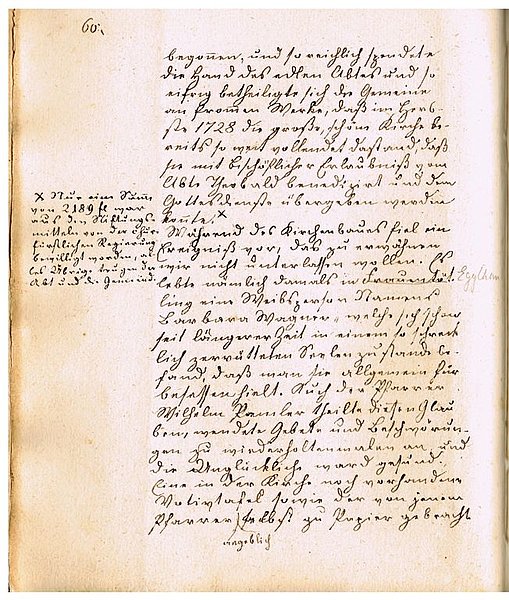 60.
begonnen, und so reichlich spendete
die Hand des edlen Abtes und so
eifrig betheiligte sich die Gemeine
am frommen Werke, daß im Herb-
ste 1728 die große, schöne Kirche be-
reits so weit vollendet dastand, daß
sie mit bischöflicher Erlaubniß vom
Abte Theobald benedizirt und dem
Gottesdienste übergeben werden
konnte. x
x Nur eine Summe
von 2189 fl war
aus den Stiftungs-
mitteln von der chur-
fürstlichen Regierung
bewilligt worden, al-
les Übrige trugen der
Abt und die Gemeinde.
Während des Kirchenbaues fiel ein
Ereigniß vor, das zu erwähnen
wir nicht unterlassen wollen. Es
lebte nämlich damals in Frauen
ling eine Weibsperson Namens
Barbara Wagner, welche sich schon
seit längerer Zeit in einem so schreck-
lich zerrütteten Seelenzustande be-
fand, daß man sie allgemein für
besessen hielt. Auch der Pfarrer
Wilhelm theilte diesen Glau-
ben, wendete Gebete und Beschwörun-
gen zu wiederholtenmalen an und
die Unglückliche ward gesund.
Eine in der Kirche noch vorhandene
Votivtafel sowie der von jenem
Pfarrer selbst zu Papier gebracht
angeblich